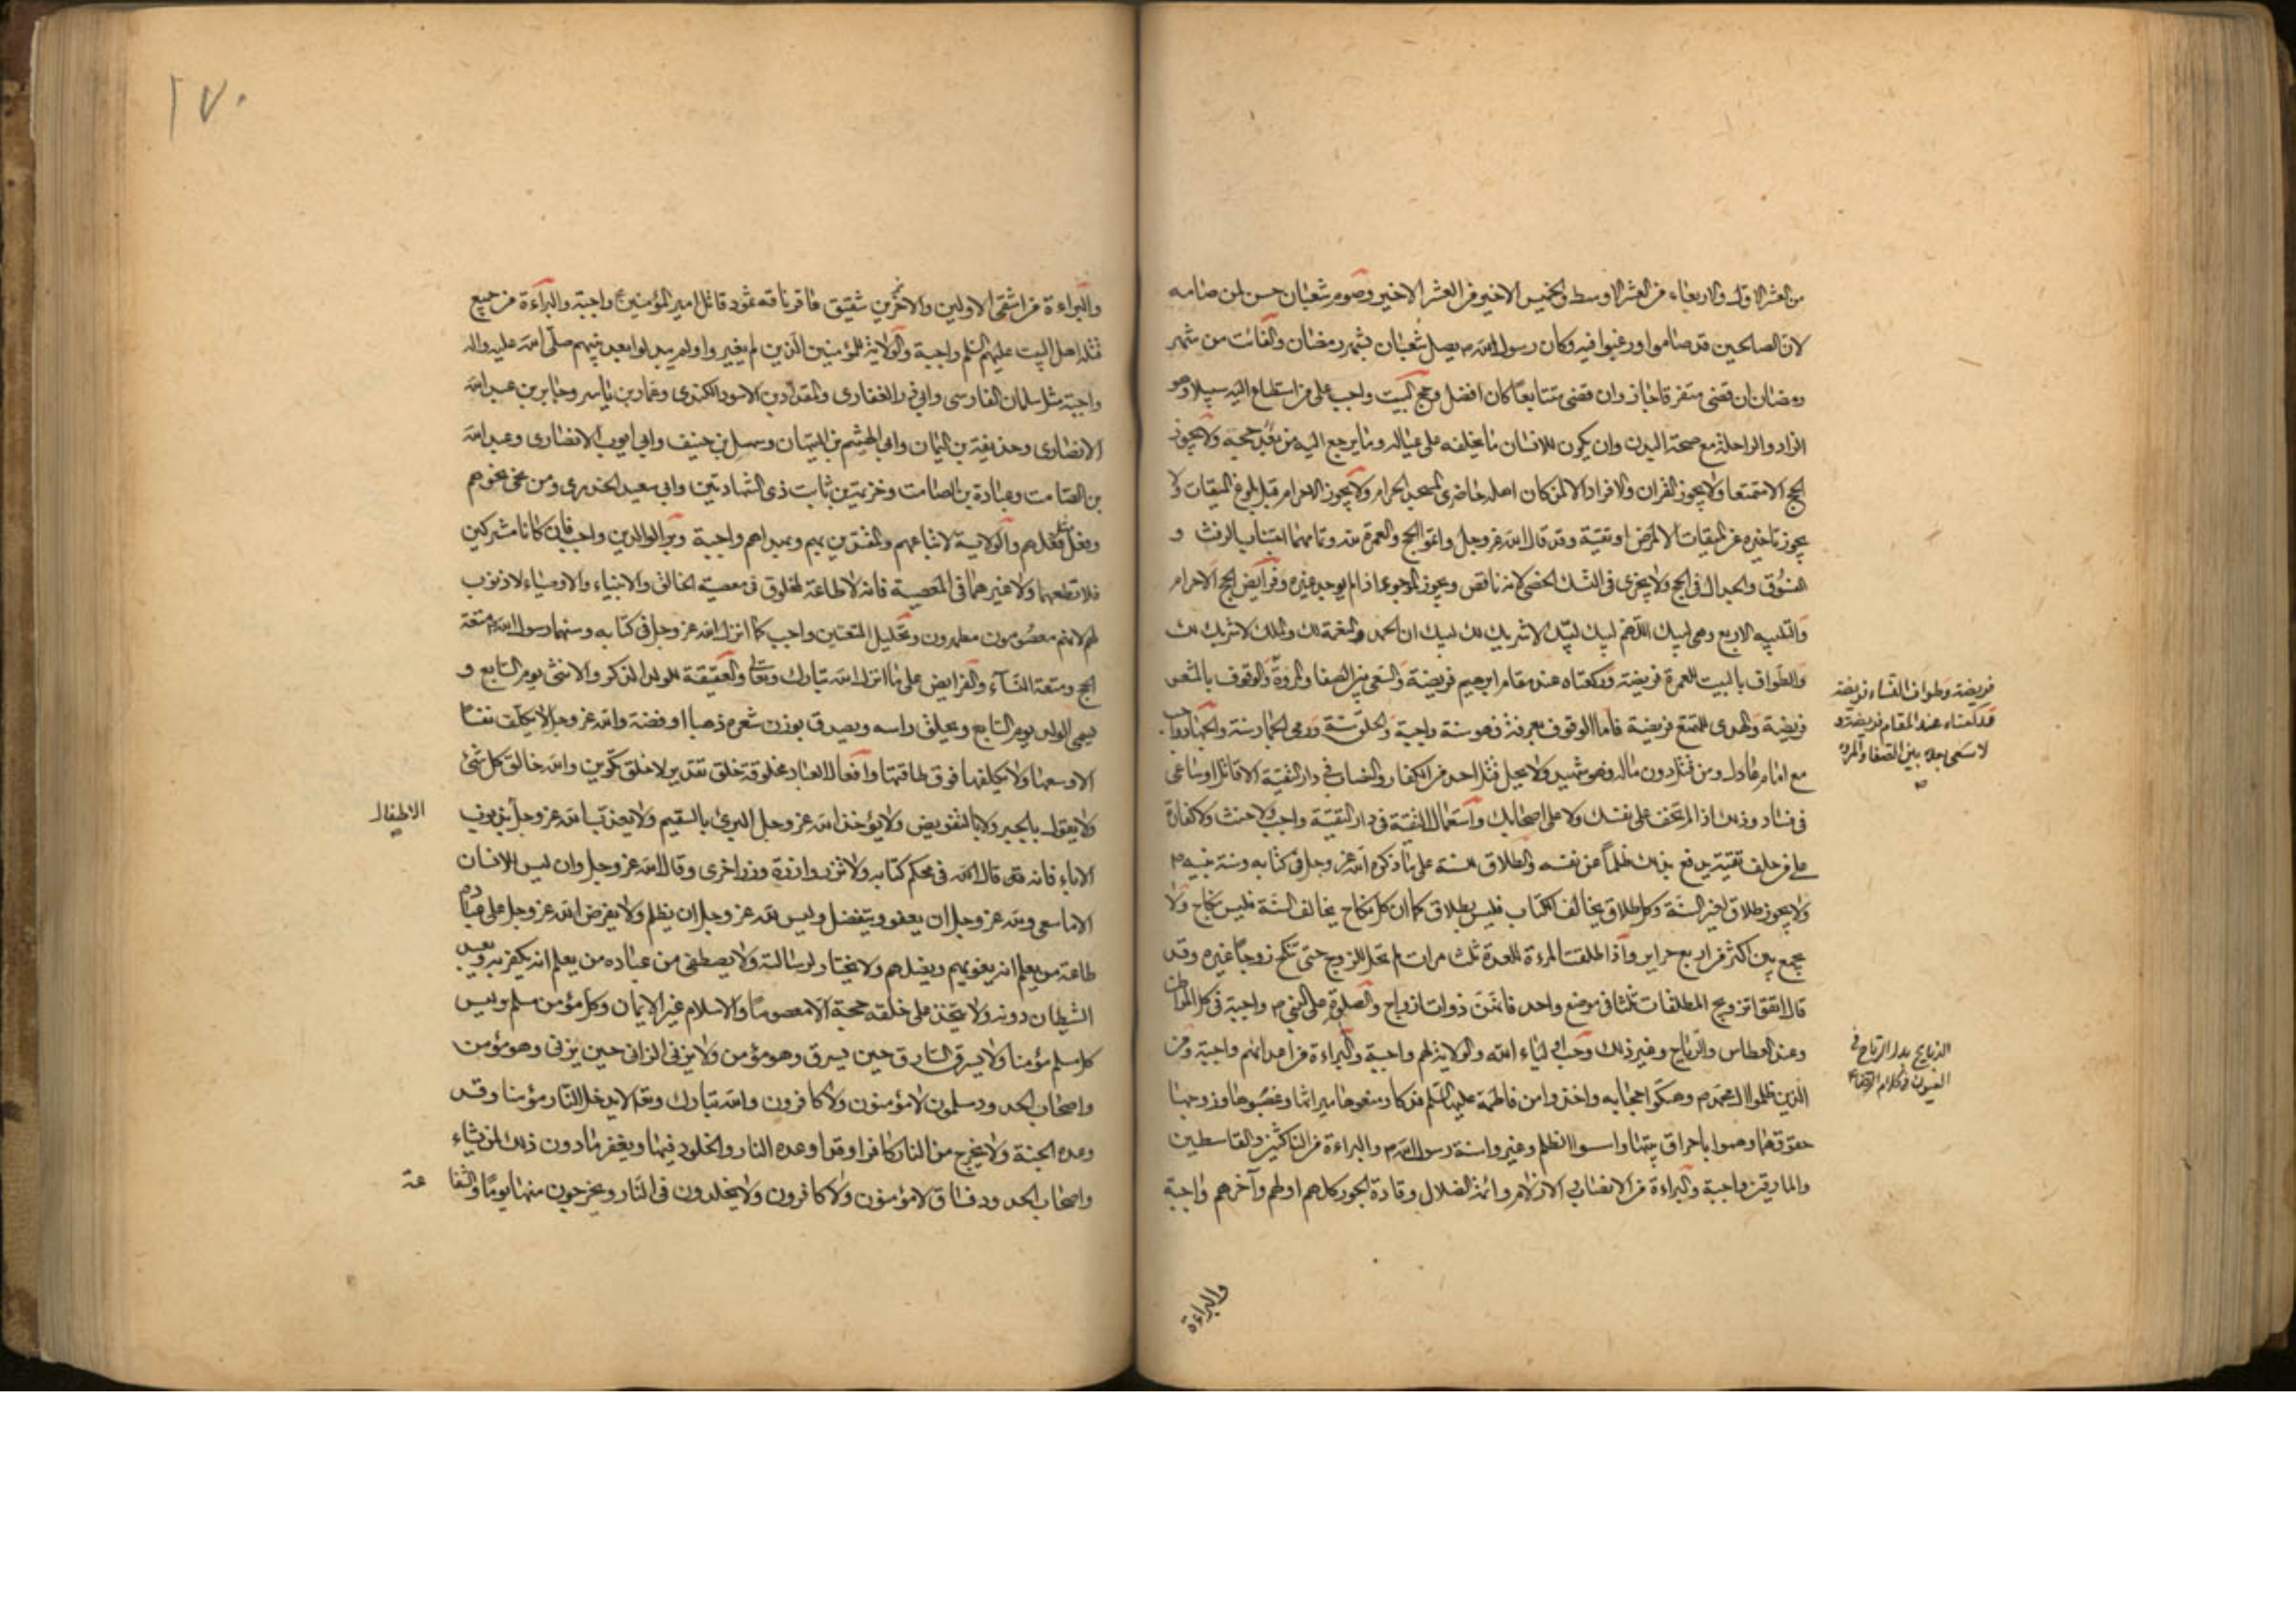 من العشر الاول والاربعاء من العشر الاوسط والخميس الاخير من العشر الاخير وصوم شعبان حسن لمن صامه
لان الصالحين قد صاموا ورغبوا فيه وكان رسول الله ص يصل شعبان بشهر رمضان والفائت من شهر
رمضان ان قضى متفرقا جاز وان قضى متتابعا كان افضل وحج البيت واجب على من استطاع اليه سبيلا وهو
الزاد والراحلة مع صحة البدن وان يكون للانسان ما يخلفه على عياله وما يرجع اليه من بعد حجه ولا يجوز
الحج الا تمتعا ولا يجوز القران والافراد الا لمن كان اهله حاضري المسجد الحرام ولا يجوز الاحرام قبل بلوغ الميقات ولا
يجوز تاخيره عن الميقات الا لمرض او تقية وقد قال الله عز وجل واتموا الحج والعمرة لله وتمامهما اجتناب الرفث و
الفسوق والجدال في الحج ولا يجزي في النسك الخصي لانه ناقص ويجوز الموجوء اذا لم يوجد غيره وفرائض الحج الاحرام
والتلبيه الاربع وهي لبيك اللهم لبيك لبيك لا شريك لك لبيك ان الحمد والنعمة لك والملك لا شريك لك
والطواف بالبيت للعمرة فريضة وركعتاه عند مقام ابرهيم فريضة والسعي بين الصفا والمروة والوقوف بالمشعر
فريضة وطواف النساء فريضة
فريضة والهدي للمتمتع فريضة فاما الوقوف بعرفة فهو سنة واجبة والحلق سنة ورمي الجمار سنة والجهاد واجب
وركعتاه عند المقام فريضة و
لا سعى بعده بين الصفا والمروة
مع امام عادل ومن قتل دون ماله فهو شهيد ولا يحل قتل احد من الكفار والنصاب في دار التقية الا قاتل او ساعي
في فساد وذلك اذا لم تخف على نفسك ولا على اصحابك واستعمال التقية في دار التقية واجب ولا حنث ولا كفارة
على من حلف تقية يدفع بذلك ظلما عن نفسه والطلاق للسنة على ما ذكره الله عز وجل في كتابه وسنة نبيه ص
ولا يجوز طلاق لغير السنة وكل طلاق يخالف الكتاب فليس بطلاق كما ان كل نكاح يخالف السنة فليس بنكاح ولا
يجمع بين اكثر من اربع حراير واذا طلقت المرءة للعدة ثلث مرات لم تحل للزوج حتى تنكح زوجا غيره وقد
قال اتقوا تزويج المطلقات ثلثا في موضع واحد فانهن ذوات ازواج والصلوة على النبي ص واجبة في كل المواطن
وعند العطاس والرياح وغير ذلك وحب اولياء الله والولاية لهم واجبة والبراءة من اعدائهم واجبة ومن
الذبايح بدل الرياح في
الذين ظلموا ال محمد ص وهتكوا حجابه واخذوا من فاطمة عليها السلم فدكا ومنعوها ميراثها وغصبوها وزوجها
حقوقهما وهموا باحراق بيتها واسسوا الظلم وغيروا سنة رسول الله ص والبراءة من الناكثين والقاسطين
والمارقين واجبة والبراءة من الانصاب والازلام وائمة الضلال وقادة الجور كلهم اولهم وآخرهم واجبة
والبراءة
١٧٠
والبراءة من اشقى الاولين والاخرين شقيق عاقر ناقه ثمود قاتل امير المؤمنين ع واجبة والبراءة من جميع
قتلة اهل البيت عليهم السلم واجبة والولاية للمؤمنين الذين لم يغيروا ولم يبدلوا بعد نبيهم صلى الله عليه واله
واجبة مثل سلمان الفارسي وابي ذر الغفاري والمقداد بن الاسود الكندي وعمار بن ياسر وجابر بن عبد الله
الانصاري وحذيفة بن اليمان وابي الهيثم بن التيهان وسهل بن حنيف وابي ايوب الانصاري وعبد الله
بن الصامت وعبادة بن الصامت وخزيمة بن ثابت ذي الشهادتين وابي سعيد الخدري ومن نحى نحوهم
وفعل مثل فعلهم والولاية لاتباعهم والمقتدين بهم وبهداهم واجبة وبر الوالدين واجب فان كانا مشركين
فلا تطعهما ولا غيرهما في المعصية فانه لا طاعة لمخلوق في معصية الخالق والانبياء والاوصياء لا ذنوب
لهم لانهم معصومون مطهرون وتحليل المتعتين واجب كما انزل الله عز وجل في كتابه وسنهما رسول الله ص متعة
الحج ومتعة النسآء والفرايض على ما انزل الله تبارك وتعالى والعقيقة للولد الذكر والانثى يوم السابع و
يسمى الولد يوم السابع ويحلق راسه ويصدق بوزن شعره ذهبا او فضة والله عز وجل لا يكلف نفسا
الا وسعها ولا يكلفها فوق طاقتها وافعال العباد مخلوقة خلق تقدير لا خلق تكوين والله خالق كل شئ
ولا يقول بالجبر ولا بالتفويض ولا يؤخذ الله عز وجل البرئ بالسقيم ولا يعذب الله عز وجل بذنوب
الاطفال
الاباء فانه قد قال الله في محكم كتابه ولا تزر وازرة وزر اخرى وقال الله عز وجل وان ليس للانسان
الا ما سعى ولله عز وجل ان يعفو ويتفضل وليس لله عز وجل ان يظلم ولا يفرض الله عز وجل على عباده
طاعة من يعلم انه يغويهم ويضلهم ولا يختار لرسالته ولا يصطفي من عباده من يعلم انه يكفر به ويعبد
الشيطان دونه ولا يتخذ على خلقه حجة الا معصوما والاسلام غير الايمان وكل مؤمن مسلم وليس
كل مسلم مؤمنا ولا يسرق السارق حين يسرق وهو مؤمن ولا يزني الزاني حين يزني وهو مؤمن
واصحاب الحدود مسلمون لا مؤمنون ولا كافرون والله تبارك وتعالى لا يدخل النار مؤمنا وقد
وعده الجنة ولا يخرج من النار كافرا وقد اوعده النار والخلود فيها ويغفر ما دون ذلك لمن يشاء
واصحاب الحدود فساق لا مؤمنون ولا كافرون ولا يخلدون في النار ويخرجون منها يوما والشفا
عة